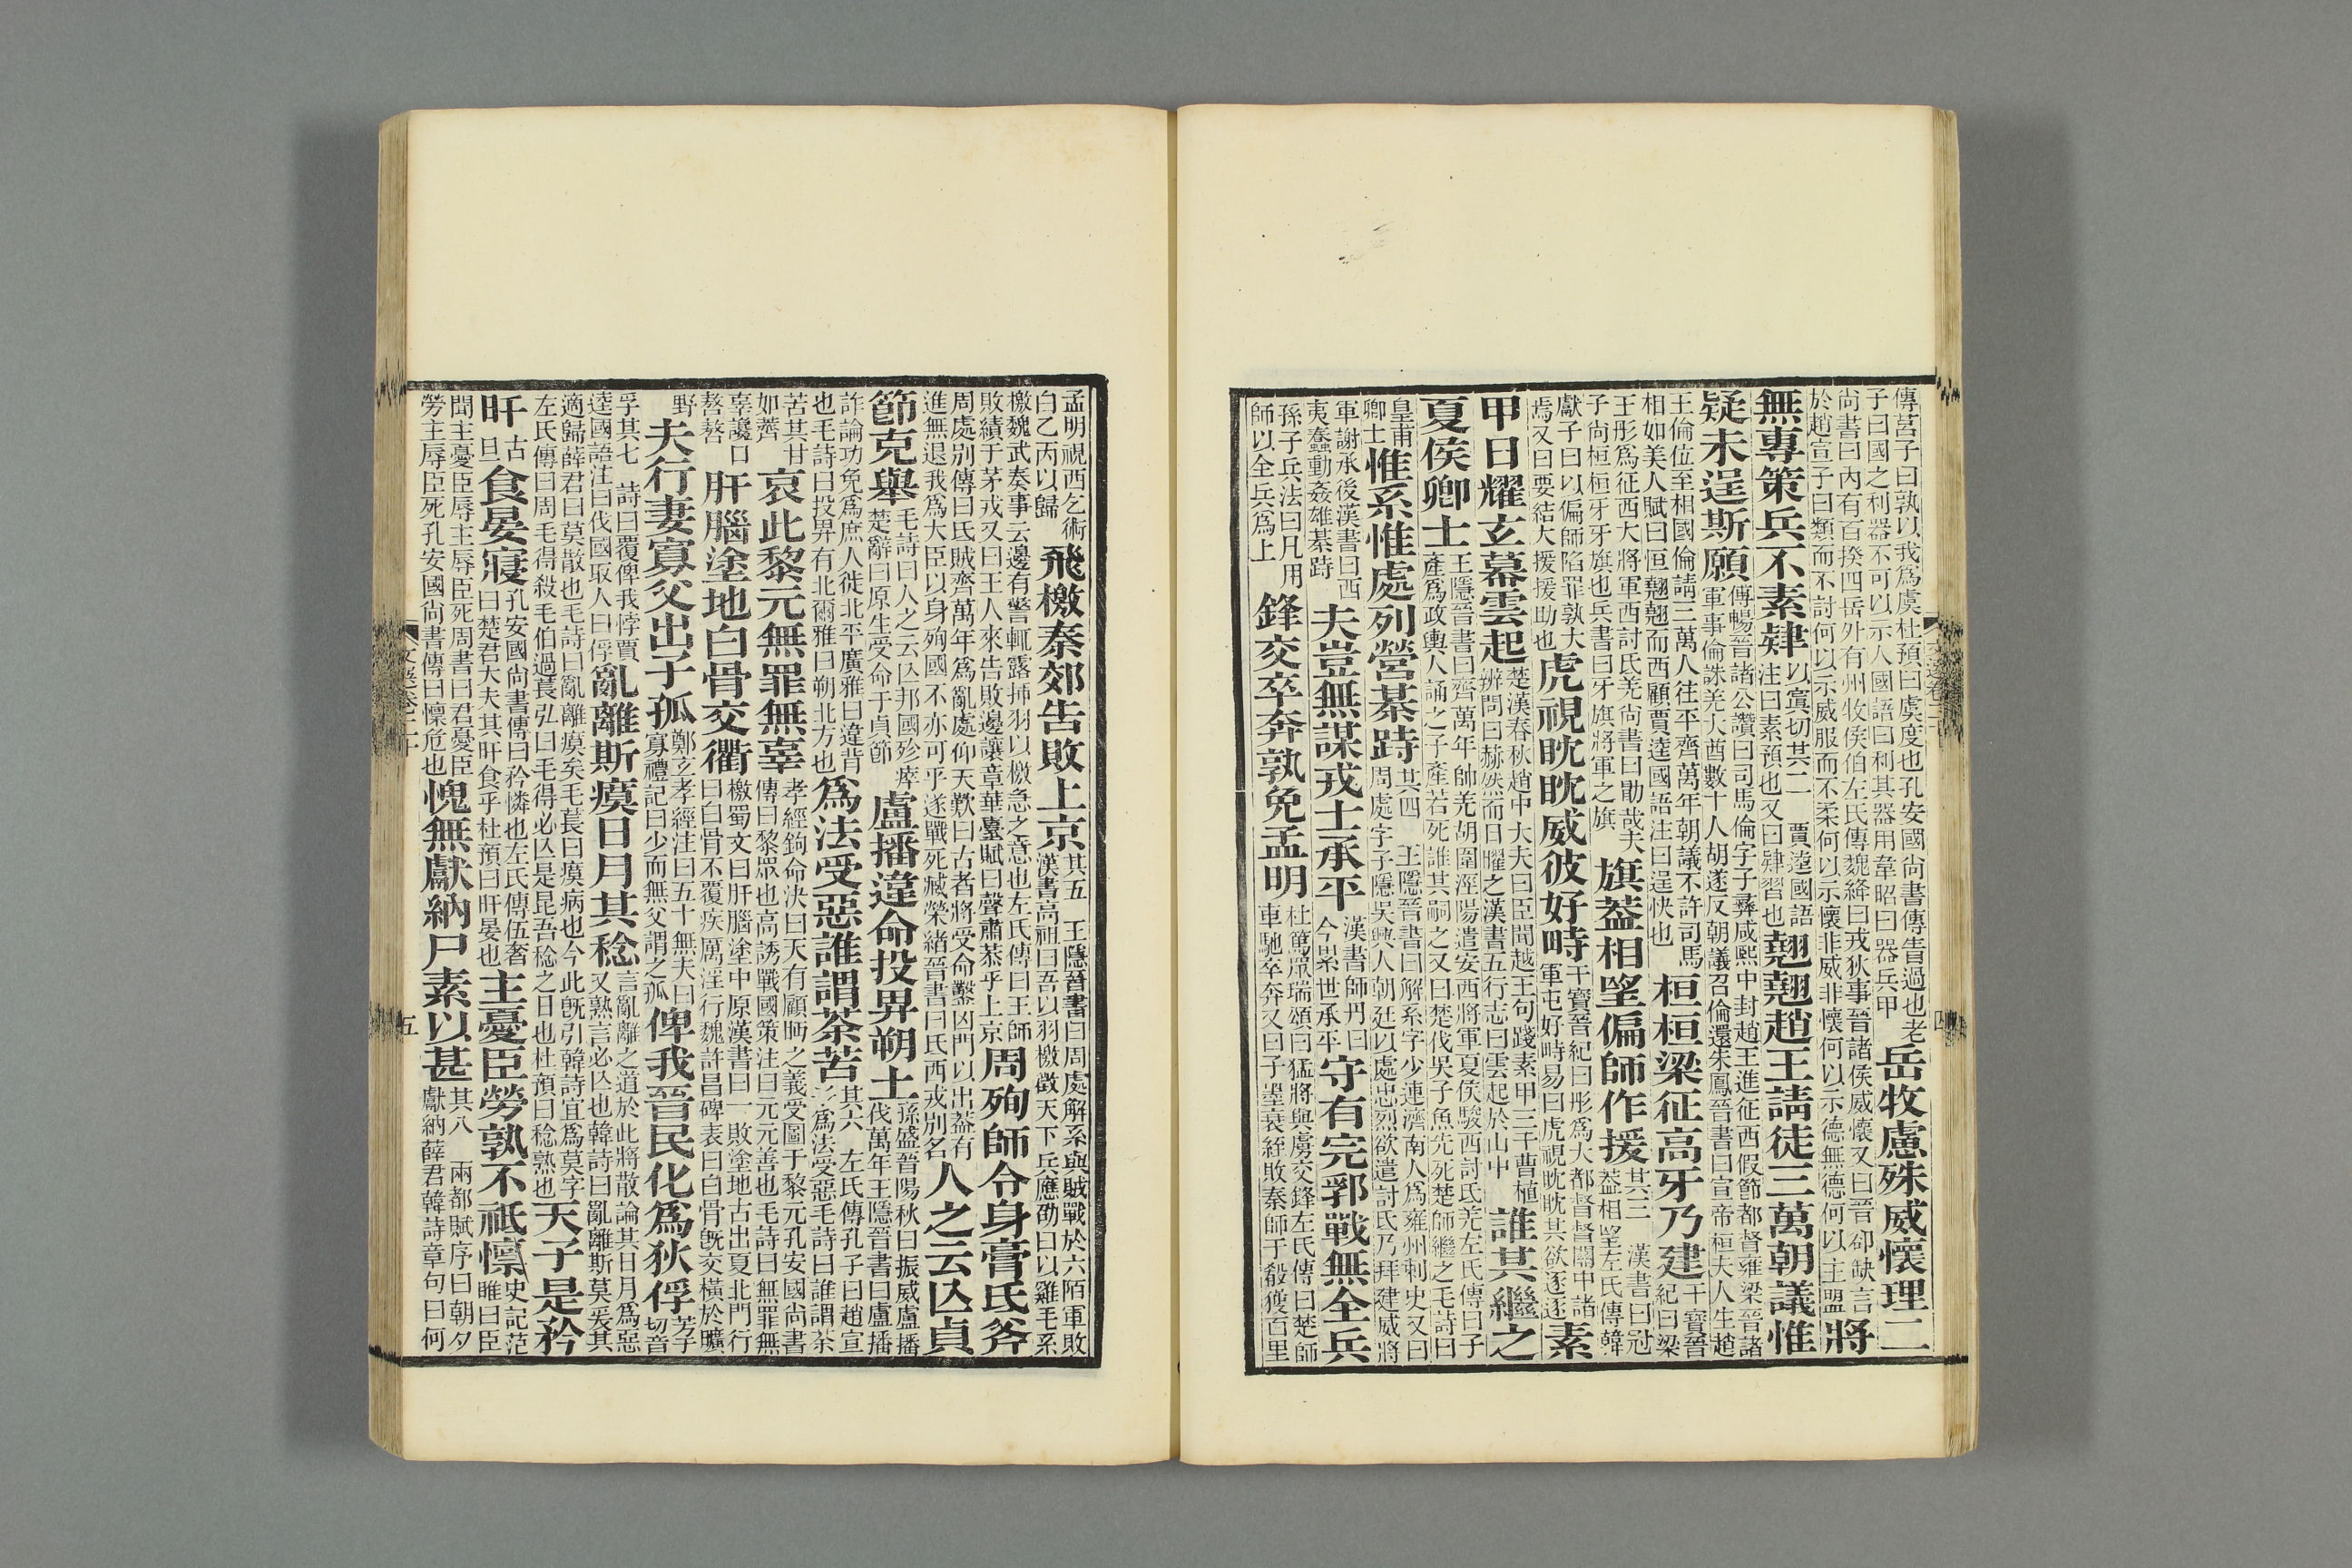 傳莒子曰孰以我爲虞杜預曰虞度也孔安國尚書傳眚過也老子曰國之利器不可以示人國語曰利其器用韋昭曰器兵甲岳牧慮殊威懷理二
尚書曰內有百揆四岳外有州牧侯伯左氏傳魏絳曰戎狄事晉諸侯威懷又曰晉卻缺言於趙宣子曰類而不討何以示威服而不柔何以示懷非威非懷何以示德無德何以主盟將
無專策兵不素肄以寘切其二 賈逵國語注曰素預也又曰肄習也翹翹趙王請徒三萬朝議惟
疑未逞斯願傅暢晉諸公讚曰司馬倫字子彝咸熙中封趙王進征西假節都督雍梁晉諸軍事倫誅羌大酋數十人胡遂反朝議召倫還朱鳳晉書曰宣帝桓夫人生趙
王倫位至相國倫請三萬人往平齊萬年朝議不許司馬相如美人賦曰恒翹翹而西顧賈逵國語注曰逞快也桓桓梁征高牙乃建干寶晉紀曰梁
王肜爲征西大將軍西討氐羌尚書曰勖哉夫子尚桓桓牙牙旗也兵書曰牙旗將軍之旗旗蓋相望偏師作援其三 漢書曰冠蓋相望左氏傳韓
獻子曰以偏師陷罪孰大焉又曰要結大援援助也虎視眈眈威彼好畤干寶晉紀曰肜爲大都督督關中諸軍屯好畤易曰虎視眈眈其欲逐逐素
甲日耀玄幕雲起楚漢春秋趙中大夫曰臣聞越王句踐素甲三千曹植辨問曰赫然而日曜之漢書五行志曰雲起於山中誰其繼之
夏侯卿士王隱晉書曰齊萬年帥羌胡圍涇陽遣安西將軍夏侯駿西討氐羌左氏傳曰子產爲政輿人誦之子產若死誰其嗣之又曰楚伐吳子魚先死楚師繼之毛詩曰
皇甫卿士惟系惟處列營棊跱其四 王隱晉書曰解系字少連濟南人爲雍州刺史又曰周處字子隱吳興人朝廷以處忠烈欲遣討氐乃拜建威將
軍謝承後漢書曰西夷蠢動姦雄棊跱夫豈無謀戎士承平漢書師丹曰今累世承平守有完郛戰無全兵
孫子兵法曰凡用師以全兵爲上鋒交卒奔孰免孟明杜篤眾瑞頌曰猛將與虜交鋒左氏傳曰楚師車馳卒奔又曰子墨衰絰敗秦師于殽獲百里
孟明視西乞術白乙丙以歸飛檄秦郊告敗上京其五 王隱晉書曰周處解系與賊戰於六陌軍敗漢書高祖曰吾以羽檄徵天下兵應劭曰以雞毛系
檄魏武奏事云邊有警輒露插羽以檄急之意也左氏傳曰王師敗績于茅戎又曰王人來告敗邊讓章華臺賦曰聲肅恭乎上京周殉師令身膏氐斧
周處別傳曰氐賊齊萬年爲亂處仰天歎曰古者將受命鑿凶門以出蓋有進無退我爲大臣以身殉國不亦可乎遂戰死臧榮緒晉書曰氐西戎別名人之云亾貞
節克舉毛詩曰人之云亾邦國殄瘁楚辭曰原生受命于貞節盧播違命投畀朔土孫盛晉陽秋曰振威盧播伐萬年王隱晉書曰盧播
詐論功免爲庶人徙北平廣雅曰違背也毛詩曰投畀有北爾雅曰朔北方也爲法受惡誰謂荼苦其六 左氏傳孔子曰趙宣子爲法受惡毛詩曰誰謂荼
苦其甘如薺哀此黎元無罪無辜孝經鉤命決曰天有顧眄之義受圖于黎元孔安國尚書傳曰黎眾也高誘戰國策注曰元元善也毛詩曰無罪無
辜讒口嗸嗸肝腦塗地白骨交衢檄蜀文曰肝腦塗中原漢書曰一敗塗地古出夏北門行曰白骨不覆疾厲淫行魏許昌碑表曰白骨旣交橫於曠
野夫行妻寡父出子孤鄭玄孝經注曰五十無夫曰寡禮記曰少而無父謂之孤俾我晉民化爲狄俘芳于切音
孚其七 詩曰覆俾我悖賈逵國語注曰伐國取人曰俘亂離斯瘼日月其稔言亂離之道於此將散論其日月爲惡又熟言必亾也韓詩曰亂離斯莫爰其
適歸薛君曰莫散也毛詩曰亂離瘼矣毛萇曰瘼病也今此旣引韓詩宜爲莫字左氏傳曰周毛得殺毛伯過萇弘曰毛得必亾是昆吾稔之日也杜預曰稔熟也天子是矜
旰古旦食晏寢孔安國尚書傳曰矜憐也左氏傳伍奢曰楚君大夫其旰食乎杜預曰旰晏也主憂臣勞孰不祗懍史記范睢曰臣
聞主憂臣辱主辱臣死周書曰君憂臣勞主辱臣死孔安國尚書傳曰懍危也愧無獻納尸素以甚其八 兩都賦序曰朝夕獻納薛君韓詩章句曰何
五